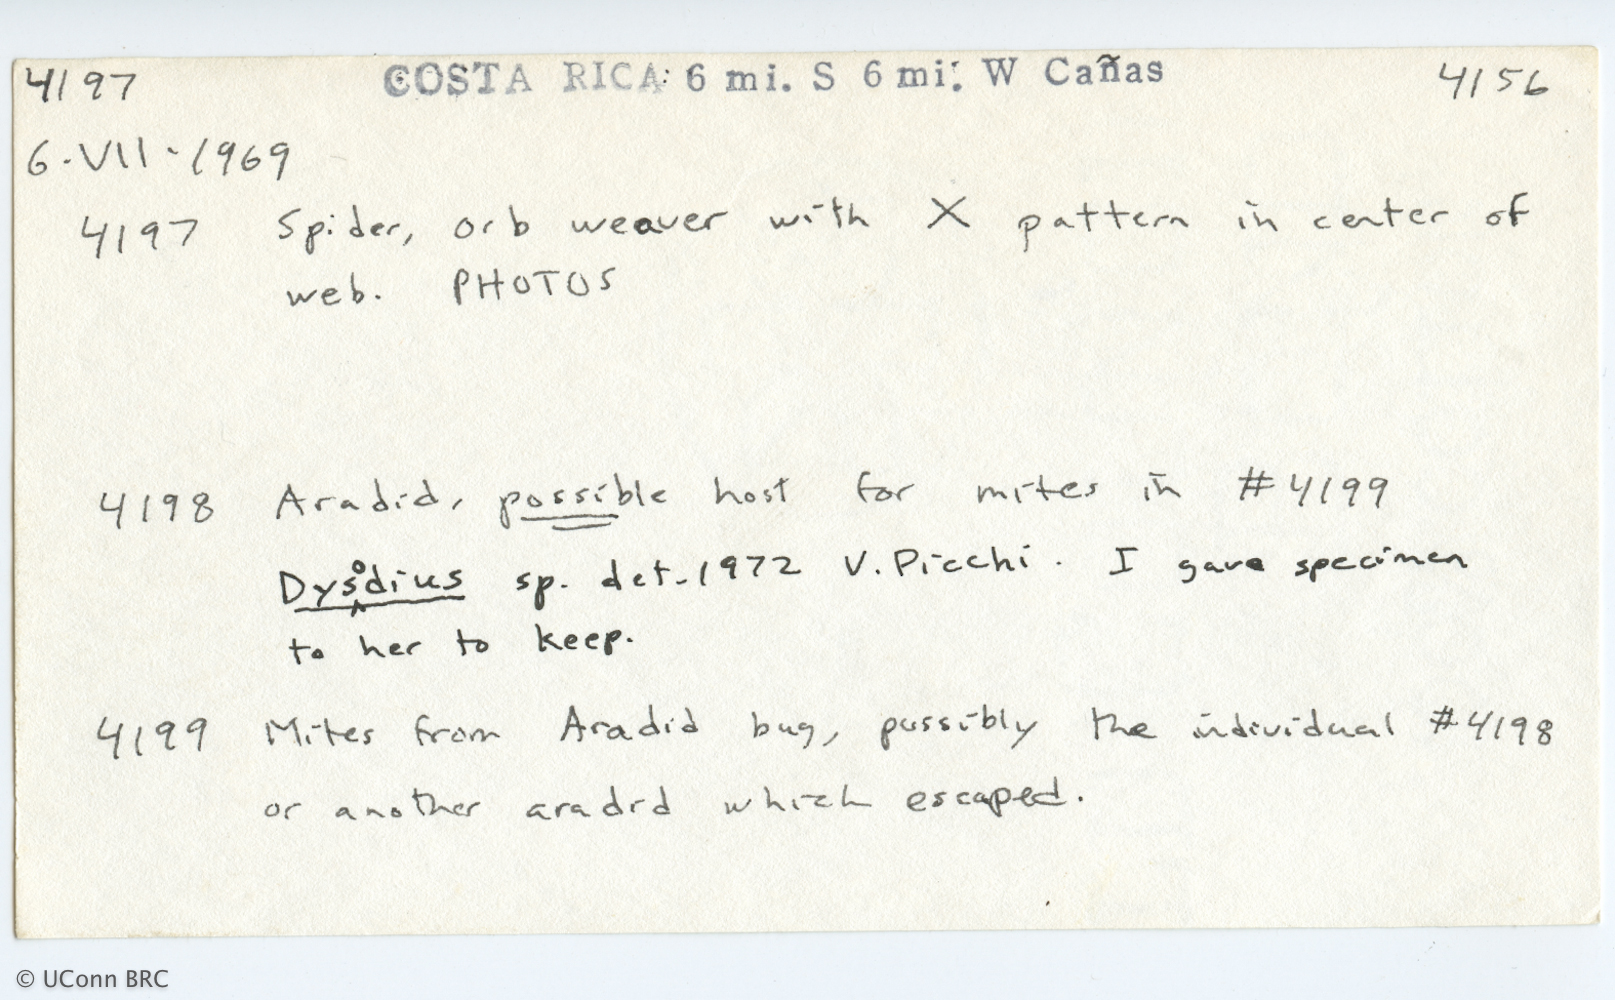 4197 COSTA RICA: 6 mi. S 6 mi. W Cañas 4156
6·VII·1969
4197 Spider, orb weaver with X pattern in center of
web. PHOTOS
4198 Aradid, possible host for mites in #4199
Dysodius sp. det. 1972 V. Picchi. I gave specimen
to her to keep.
4199 Mites from Aradid bug, possibly the individual #4198
or another aradid which escaped.
© UConn BRC